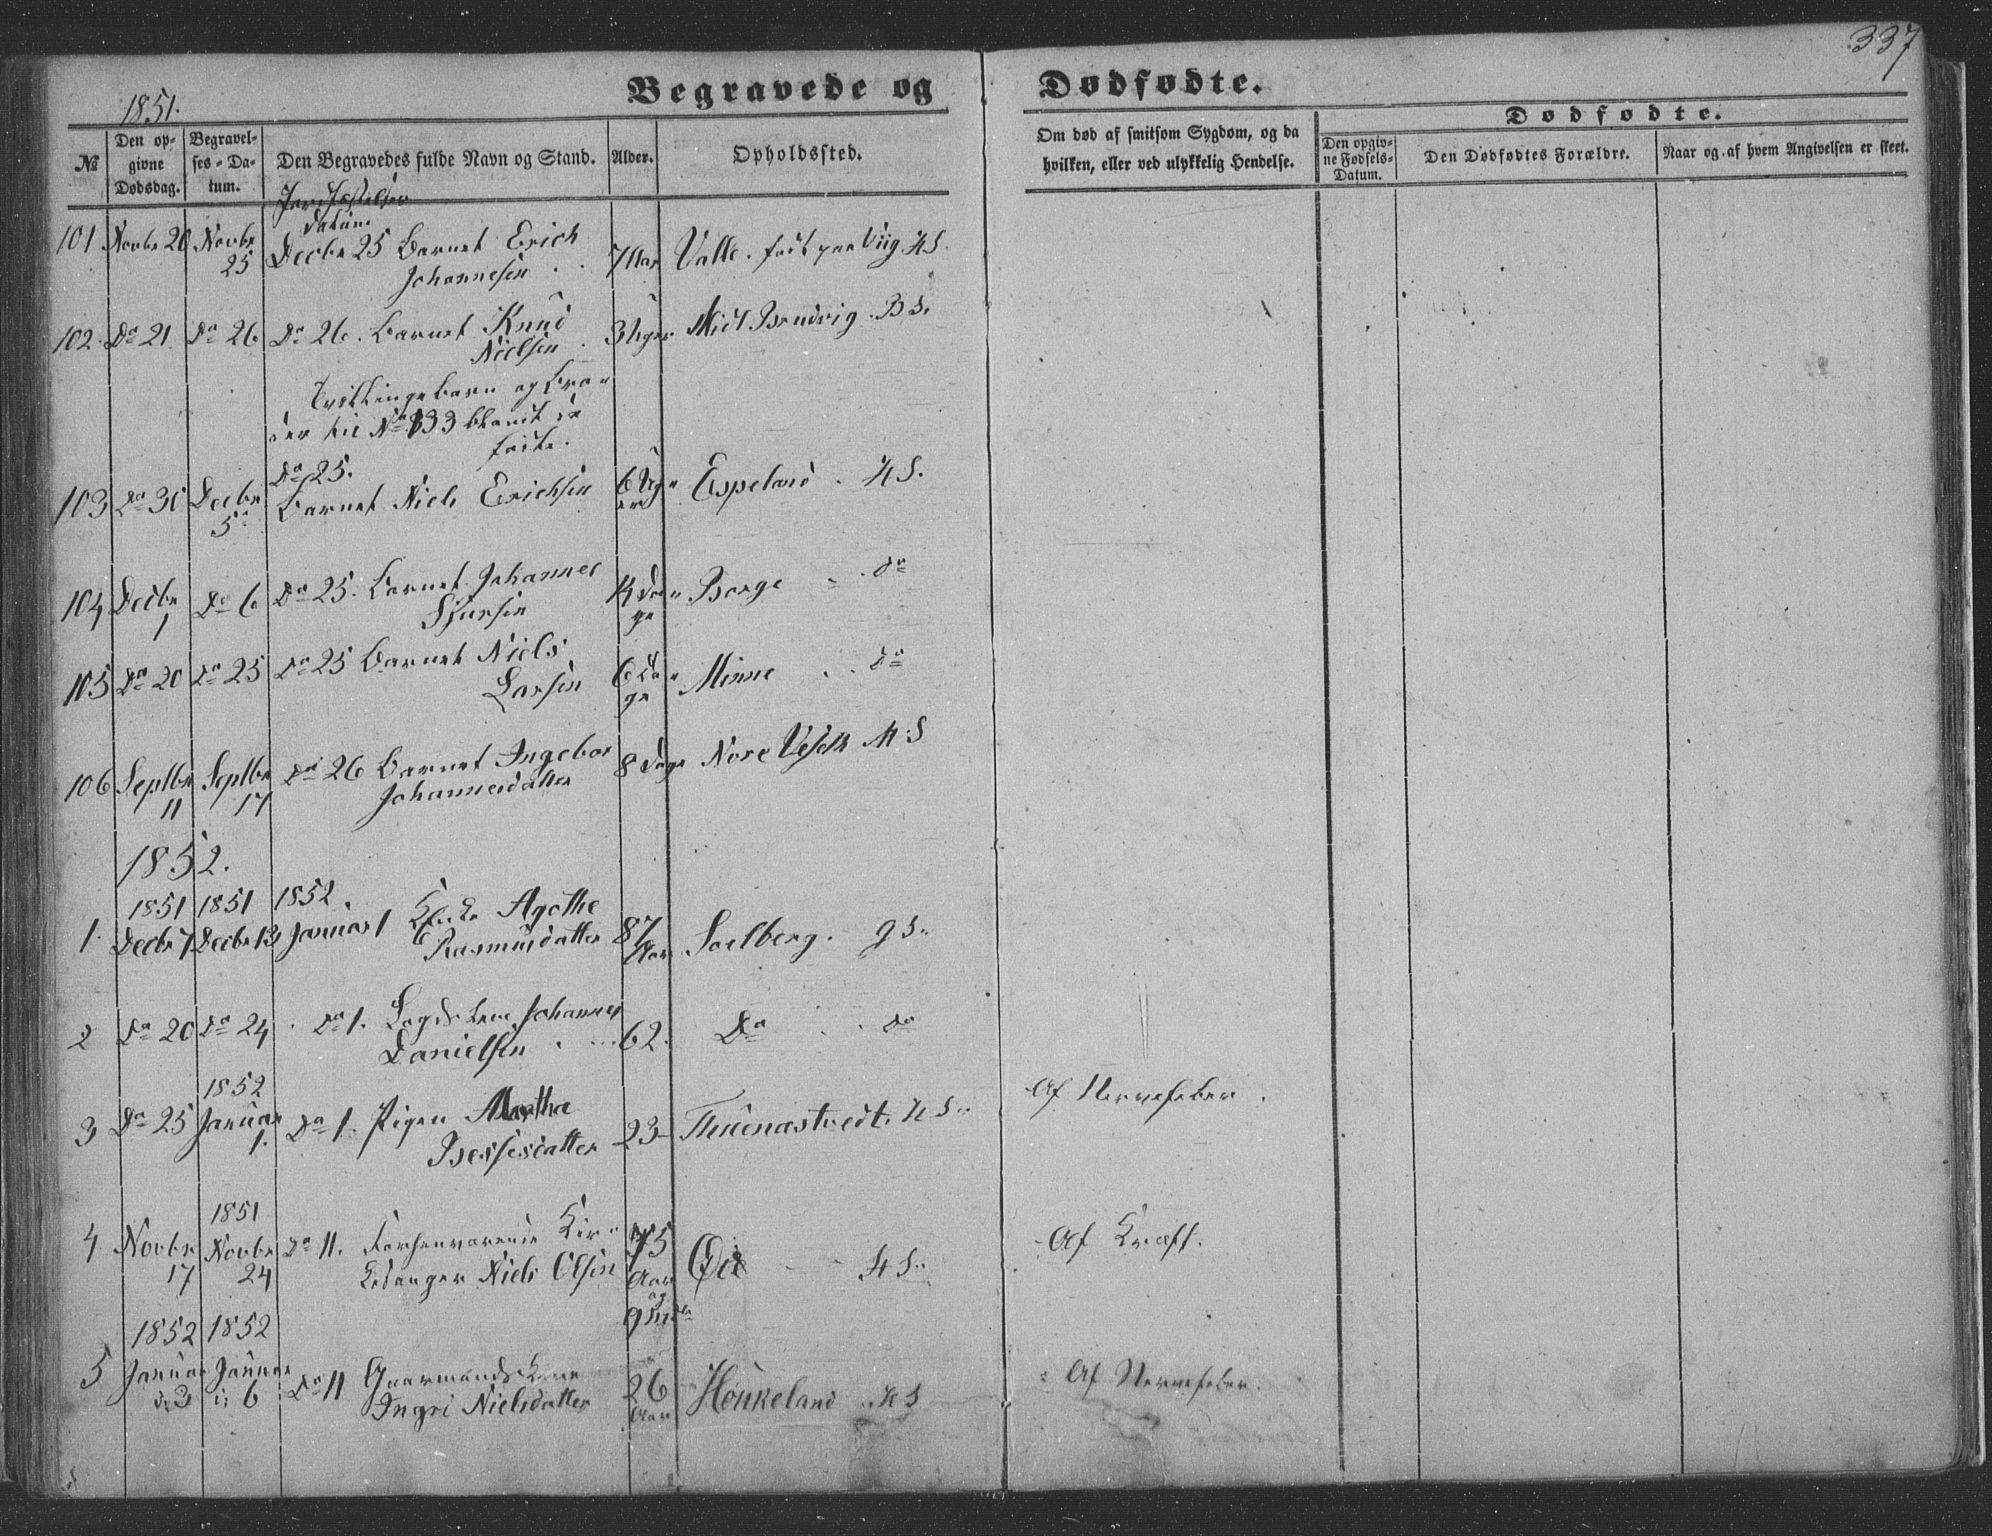 337
Begravede og Dødfødte.
1851.
№
Den opgivne Dødsdag.
Begravelses-Datum.
Den Begravedes fulde Navn og Stand.
Alder.
Opholdssted.
Om død af smitsom Sygdom, og da hvilken, eller ved ulykkelig Hendelse.
Dødfødte.
Den opgivne Fødsels-Datum.
Den Dødfødtes Forældre.
Naar og af hvem Angivelsen er skeet.
Jordfæstelses
Datum
101 Novbr 20 Novbr 25 Decbr 25 Barnet Erich
Johannesen 7 Aar Valle. født paa Viig HS.
102. Do 21 Do 26 Do 26. Barnet Knud
Nielsen. 3 Uger Midt Bruvig. BS.
Tvillingebarn og Bro-
der til No 133 blandt de
fødte.
103 Do 30 Decbr 5te Do 25.
Barnet Niels Erichsen 6 Uger Espeland. HS.
104 Decbr 1 Do 6 Do 25. Barnet Johannes
Sjursen 14 Dage Borge do
105 Do 20 Do 25 Do 25 Barnet Niels
Larsen 6 Dage Minne do
106 Septbr 11 Septbr 17 Do 26 Barnet Ingebor
Johannesdatter 8 Dage Nore M.S
1852.
1851 1851 1852.
1. Decbr 7 Decbr 13 Januar 1 Enke Agathe
Rasmusdatter 87 Aar Soelberg. gS.
2 Do 20 Do 24 Do 1. Johannes
Danielsen 62. Do do
1852
3 Do 25 Januar 1. Do 1. Pigen Martha
Bessesdatter 23 HS. Af Nervefeber.
1851
4 Novbr 17 Novbr 24 Do 11. Forhenværende Kir-
kesanger Niels Olsen 75 Aar og 9 HS. Af Kræft.
1852 1852
5 Januar d. 3 Januar d. 6 Do 11 Gaarmands Kone
Ingri Nielsdatter 26 Aar Houkeland HS Af Nervefeber.